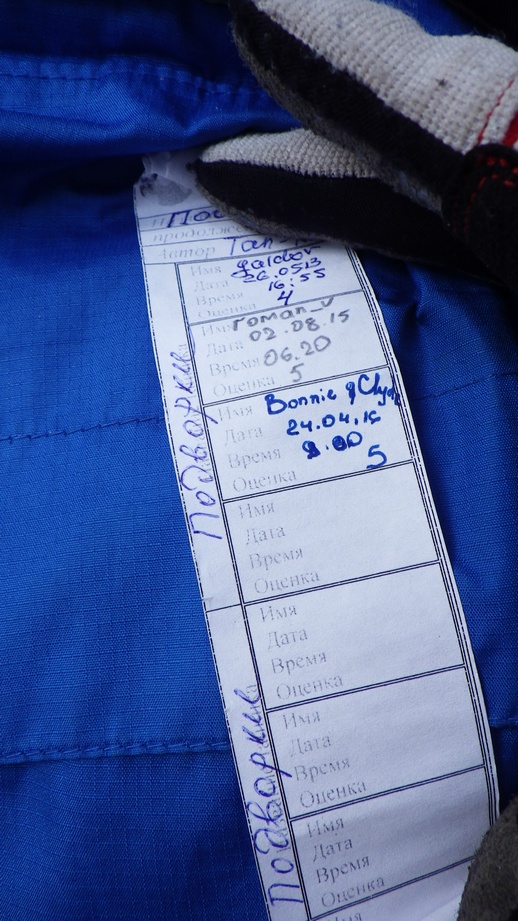 продолж
Автор Тан
Имя galdov
Дата 26.0513
Время 16:55
Оценка 4
Имя roman_v
Дата 02.08.15
Время 06.20
Оценка 5
Имя Bonnie & Clyde
Дата 24.04.16
Время 8.00
Оценка 5
Подворки
Имя
Дата
Время
Оценка
Имя
Дата
Время
Оценка
Имя
Дата
Время
Оценка
Имя
Дата
Время
Оценка
Имя
Подворки